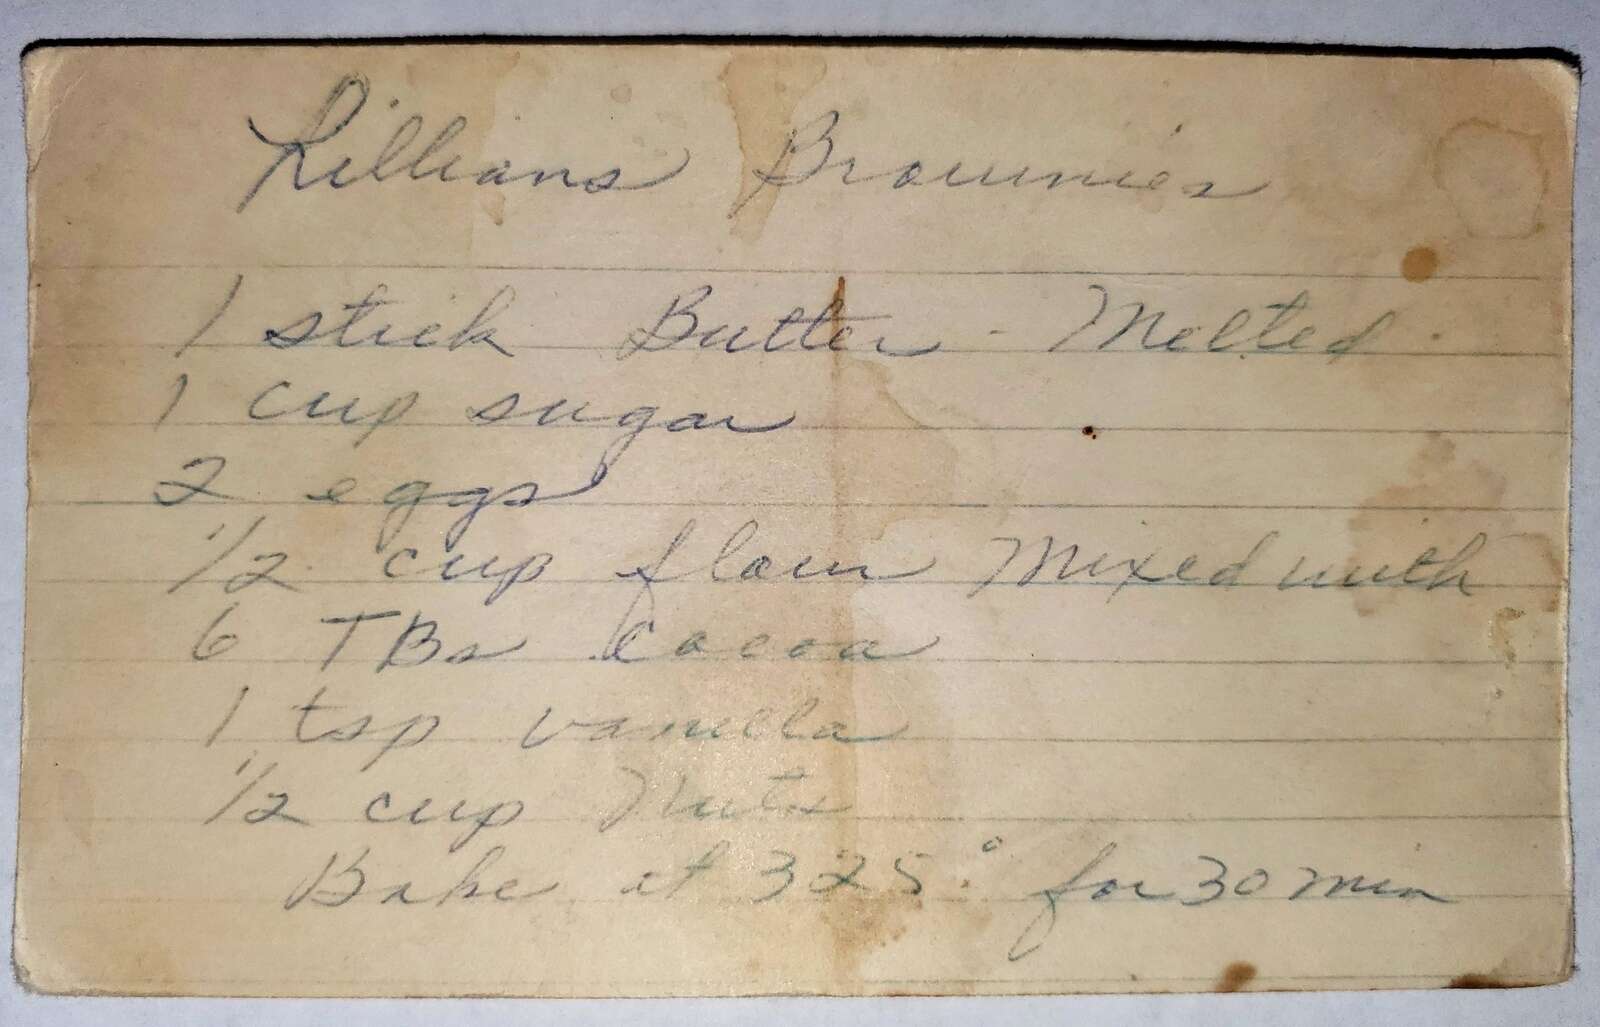 Lillians Brownies
1 stick Butter - Melted
1 cup sugar
2 eggs
1/2 cup flour Mixed with
6 TBs cocoa
1 tsp vanilla
1/2 cup Nuts
Bake at 325° for 30 min